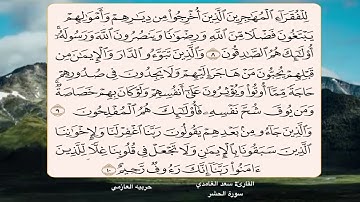 لِلْفُقَرَآءِ ٱلْمُهَٰجِرِينَ ٱلَّذِينَ أُخْرِجُوا۟ مِن دِيَٰرِهِمْ وَأَمْوَٰلِهِمْ
يَبْتَغُونَ فَضْلًا مِّنَ ٱللَّهِ وَرِضْوَٰنًا وَيَنصُرُونَ ٱللَّهَ وَرَسُولَهُۥٓ
أُو۟لَٰٓئِكَ هُمُ ٱلصَّٰدِقُونَ ٨ وَٱلَّذِينَ تَبَوَّءُو ٱلدَّارَ وَٱلْإِيمَٰنَ مِن
قَبْلِهِمْ يُحِبُّونَ مَنْ هَاجَرَ إِلَيْهِمْ وَلَا يَجِدُونَ فِى صُدُورِهِمْ
حَاجَةً مِّمَّآ أُوتُوا۟ وَيُؤْثِرُونَ عَلَىٰٓ أَنفُسِهِمْ وَلَوْ كَانَ بِهِمْ خَصَاصَةٌ
وَمَن يُوقَ شُحَّ نَفْسِهِۦ فَأُو۟لَٰٓئِكَ هُمُ ٱلْمُفْلِحُونَ ٩
وَٱلَّذِينَ جَآءُو مِنۢ بَعْدِهِمْ يَقُولُونَ رَبَّنَا ٱغْفِرْ لَنَا وَلِإِخْوَٰنِنَا
ٱلَّذِينَ سَبَقُونَا بِٱلْإِيمَٰنِ وَلَا تَجْعَلْ فِى قُلُوبِنَا غِلًّا لِّلَّذِينَ
ءَامَنُوا۟ رَبَّنَآ إِنَّكَ رَءُوفٌ رَّحِيمٌ ١٠
القارئ سعد الغامدي
سورة الحشر
حربيه العازمي